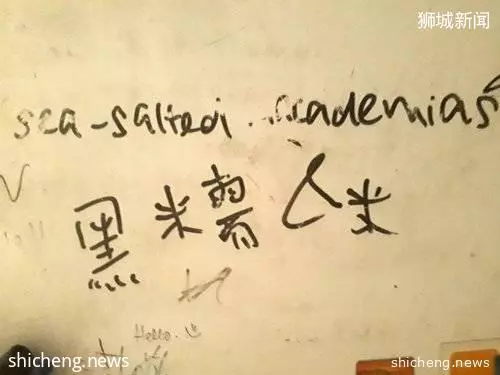 狮城新闻
sea-salted academias
黑米 米
Hello.
shicheng.news
shicheng.news